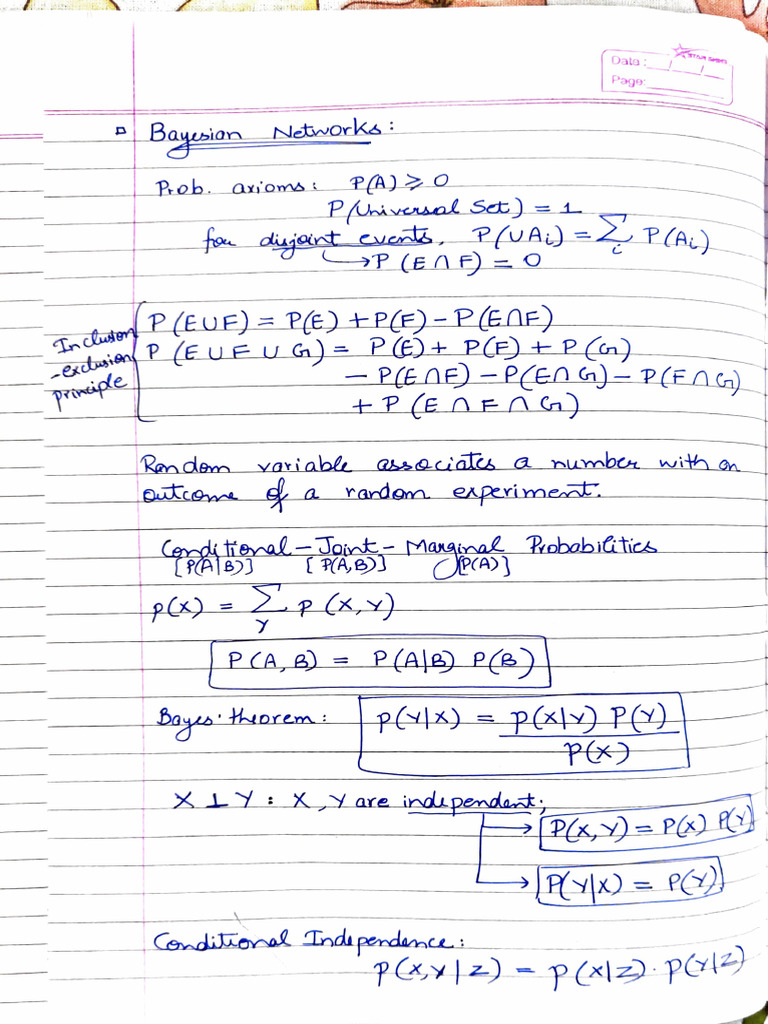 Date: __/__/__
Page: ______
Bayesian Networks:
Prob. axioms: P(A) ≥ 0
P(Universal Set) = 1
for disjoint events, P(∪Ai) = Σi P(Ai)
→ P (E ∩ F) = 0
Inclusion
-exclusion
principle
P (E ∪ F) = P(E) + P(F) - P(E ∩ F)
P (E ∪ F ∪ G) = P(E) + P(F) + P(G)
- P(E ∩ F) - P(E ∩ G) - P(F ∩ G)
+ P (E ∩ F ∩ G)
Random variable associates a number with an
outcome of a random experiment.
Conditional - Joint - Marginal Probabilities
[P(A|B)] [P(A,B)] [P(A)]
p(X) = ΣY p (X, Y)
P(A, B) = P(A|B) P(B)
Bayes' theorem: p(Y|X) = p(X|Y) P(Y) / P(X)
X ⊥ Y : X, Y are independent;
→ P(X, Y) = P(X) P(Y)
→ P(Y|X) = P(Y)
Conditional Independence:
p(X, Y | Z) = p(X|Z) . p(Y|Z)